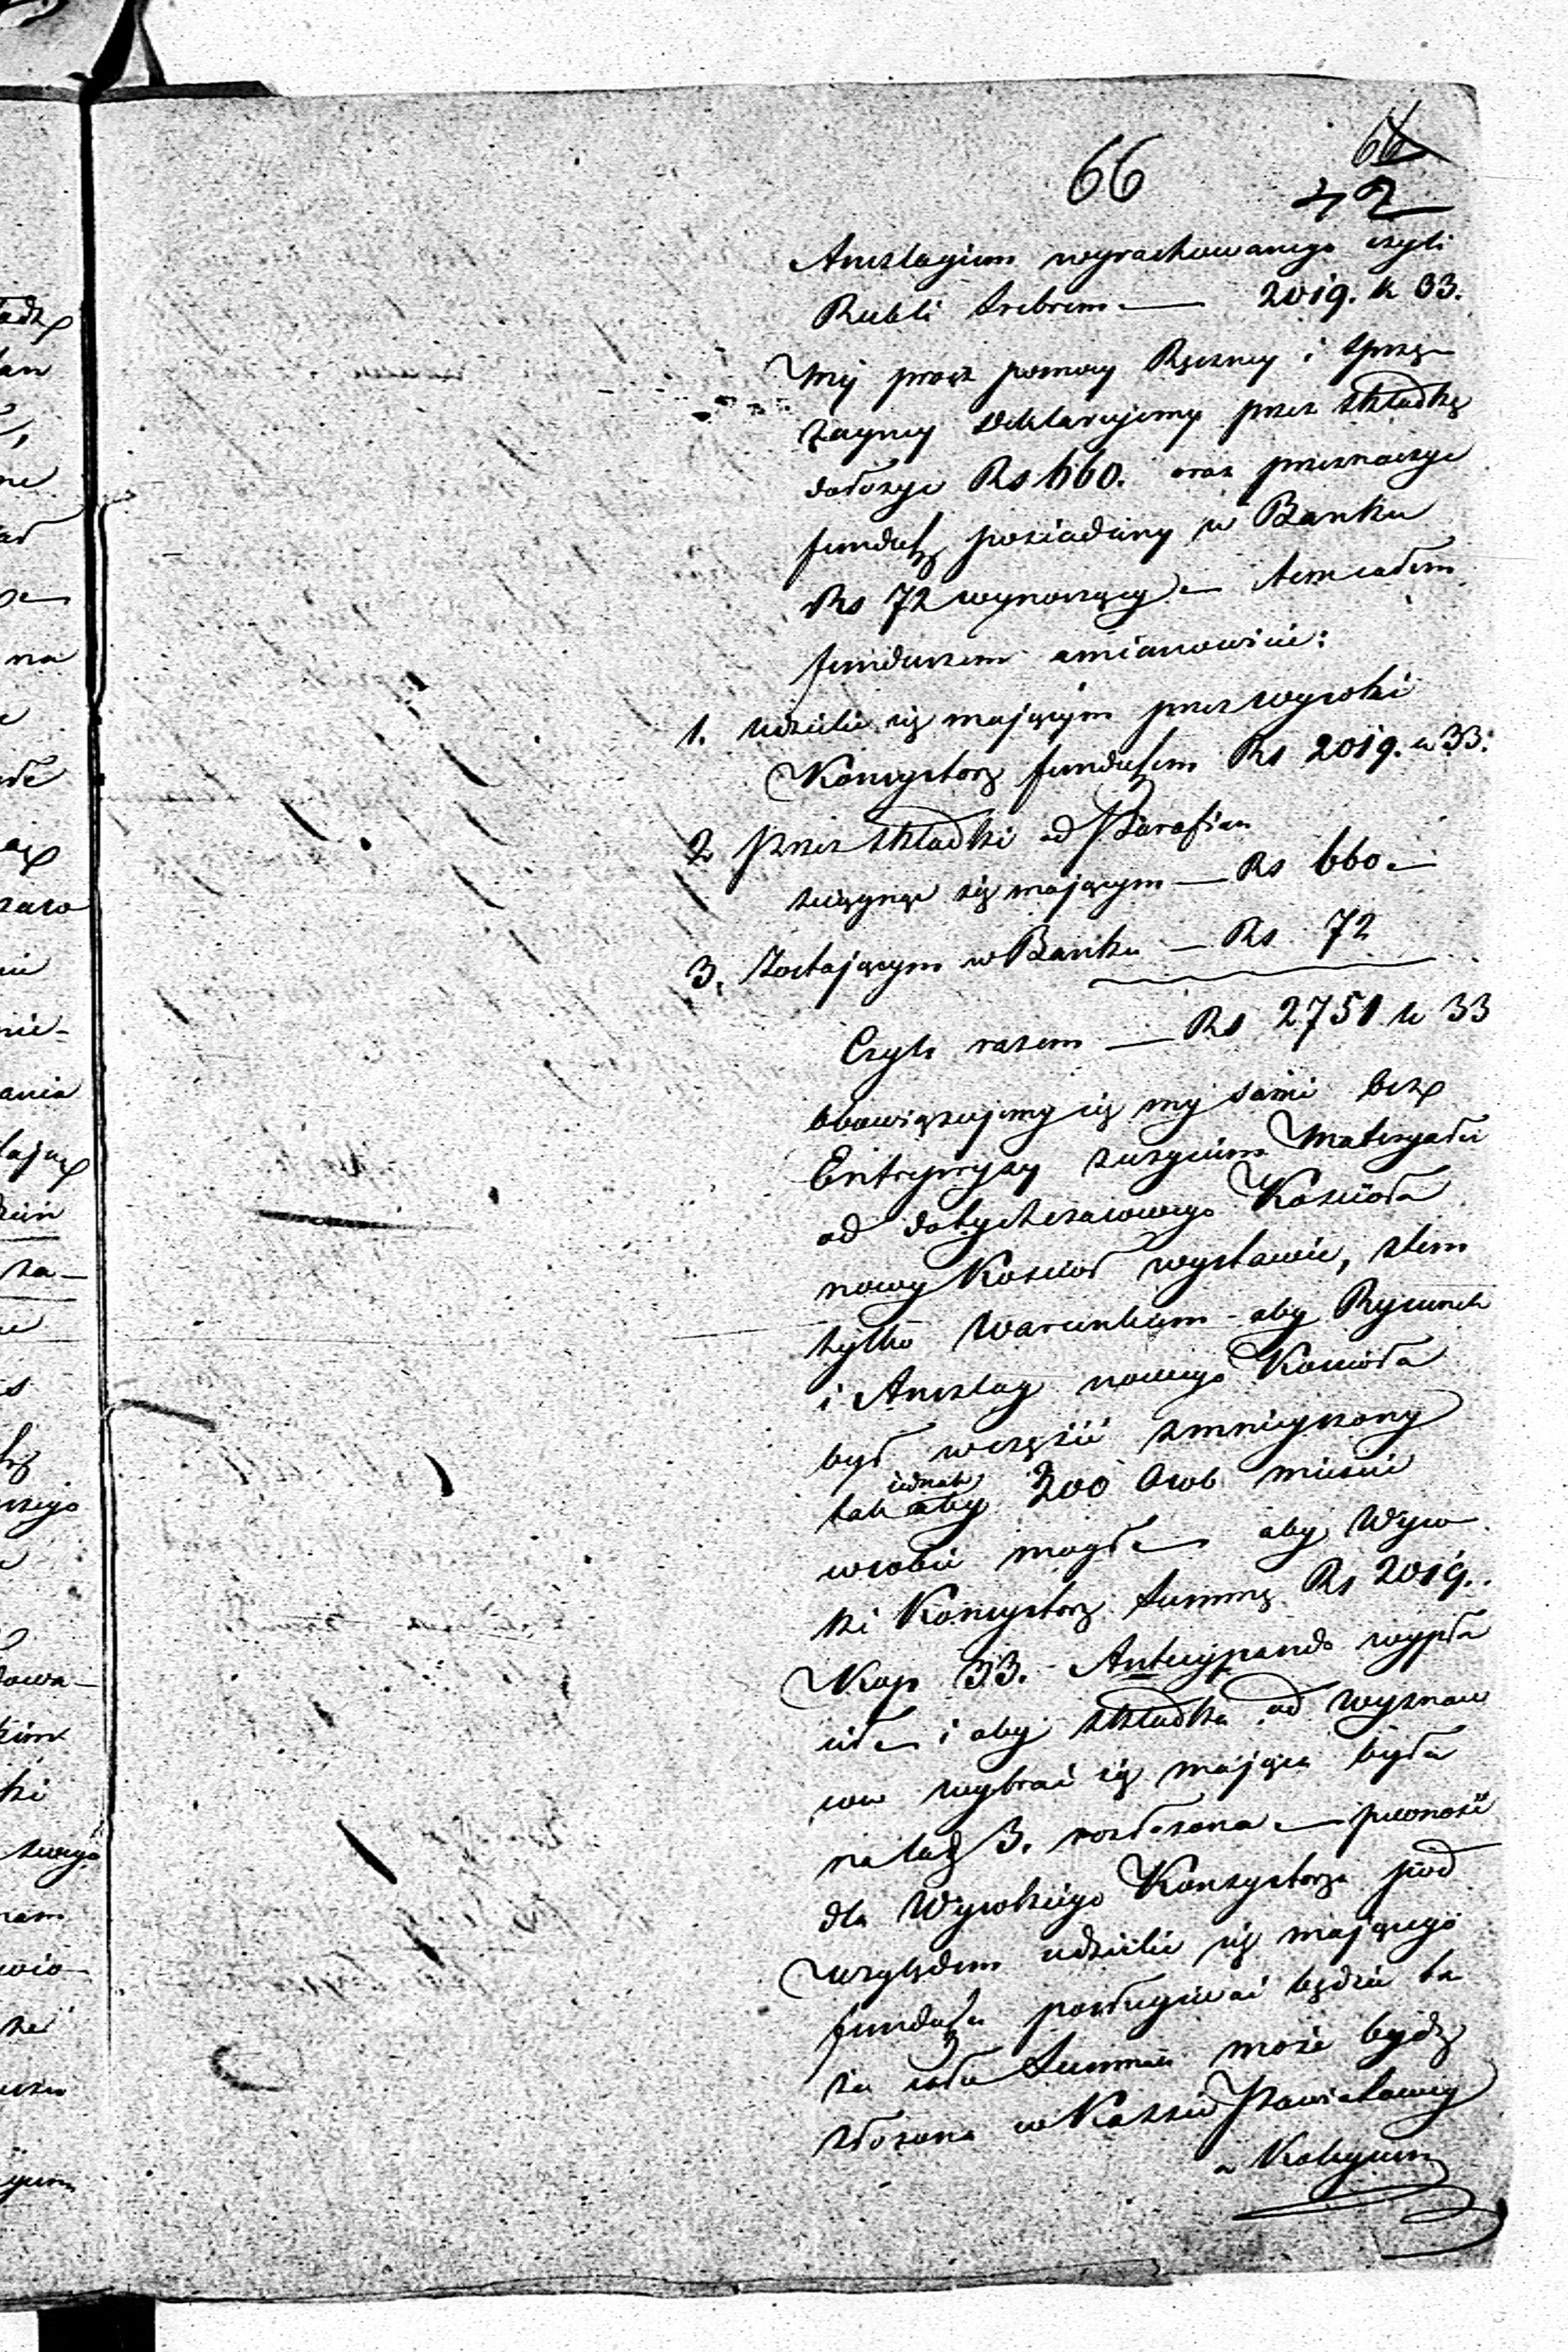 66
66
42
Anszlagiem wyrachowanego czyli
Rubli srebrem — 2019. k 33.
My procz pomocy Ręczney i sprzę-
żayney deklarujemy przez składkę
dołożyc Rs 660. oraz przeznaczyc
fundusz posiadany w Banku
Rs 72 wynoszący — tem całem
funduszem amianowicie:
1. udzielic się mającym przez wysoki
Konsystorz funduszem Rs 2019. k 33.
2 przez składki od Parafian
sciągnąc się mającym — Rs 660 —
3. Zostającym w Banku — Rs 72
Czyli razem — Rs 2751 k 33
obowiązujemy się my sami bez
Entrepryzy zużyciem Materyału
od dotychczasowego Kościoła
nowy Kościoł wystawic, z tem
tylko warunkiem - aby Rysunek
i Anszlag nowego Kościoła
był wczęści zmnieyszony
tak jednak aby 300 Osob miescic
w sobie mogł — aby Wyso
ki Konsystorz Summę Rs 2019.
Kop 33. Anticypando wypła
cił — i aby składka od wyznaw
cow wybrac się mająca była
na lat 3. rozłożona — pewność
dla Wysokiego Konsystorza pod
względem udzielic się mającego
funduszu posługiwać będzie ta
za cała Summa może bydz
złożona w Kassie Powiatowey
a Kolegium